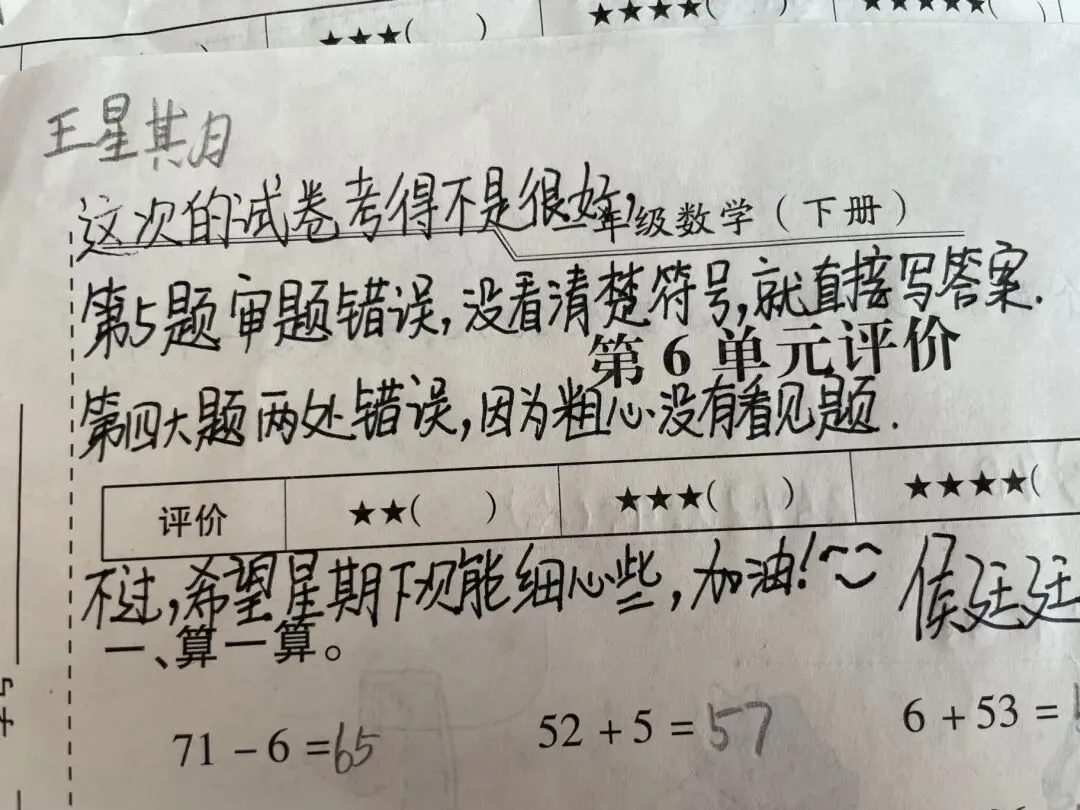 ★★★( )
★★★★(
★★★★★(
王星期
这次的试卷考得不是很好,
一年级数学（下册）
第5题审题错误,没看清楚符号,就直接写答案.
第 6 单元评价
第四大题两处错误,因为粗心没有看见题.
评价
★★( )
★★★( )
★★★★(
不过,希望星期下次能细心些,加油!
侯廷廷
一、算一算。
71 − 6 =65
52 + 5 = 57
6 + 53 =